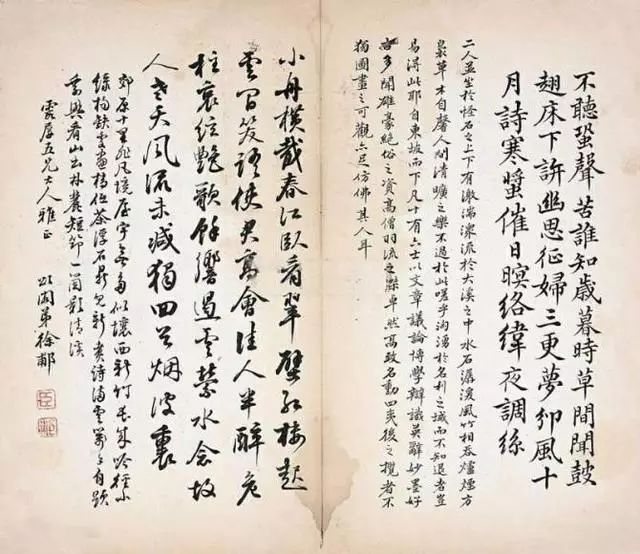 不聽蛩聲苦誰知歲暮時草間聞鼓
翅床下許幽思征婦三更夢風十
月詩寒螀催日暝絡緯夜調絲
二人並坐於怪石之上下有激湍潨流於大溪之中水石潺湲風竹相吞爐煙方
裊草木自馨人間清曠之樂不過於此嗟乎洶湧於名利之域而不知退者豈
易得此耶自東坡而下凡十有六士以文章議論博學辯識英辭妙墨好
古多聞雄豪絕俗之資高僧羽流之傑卓然高致名動四夷後之攬者不
獨圖畫之可觀亦足仿佛其人耳
小舟橫截春江臥看翠壁紅樓起
雲間笑語使君高會佳人半醉危
柱哀絃艷歌餘響遶雲縈水念故
人老大風流未減獨回首烟波裏
郊原十里屋宇無多似瀼西新竹長成吟徑小
綠楊缺處畫橋低茶浮石鼎新煮詩滿雲箋自題
乘興看山出林麓短筇一個影清溪
雲居五兄大人雅正
頌閣弟徐郙
臣
郙